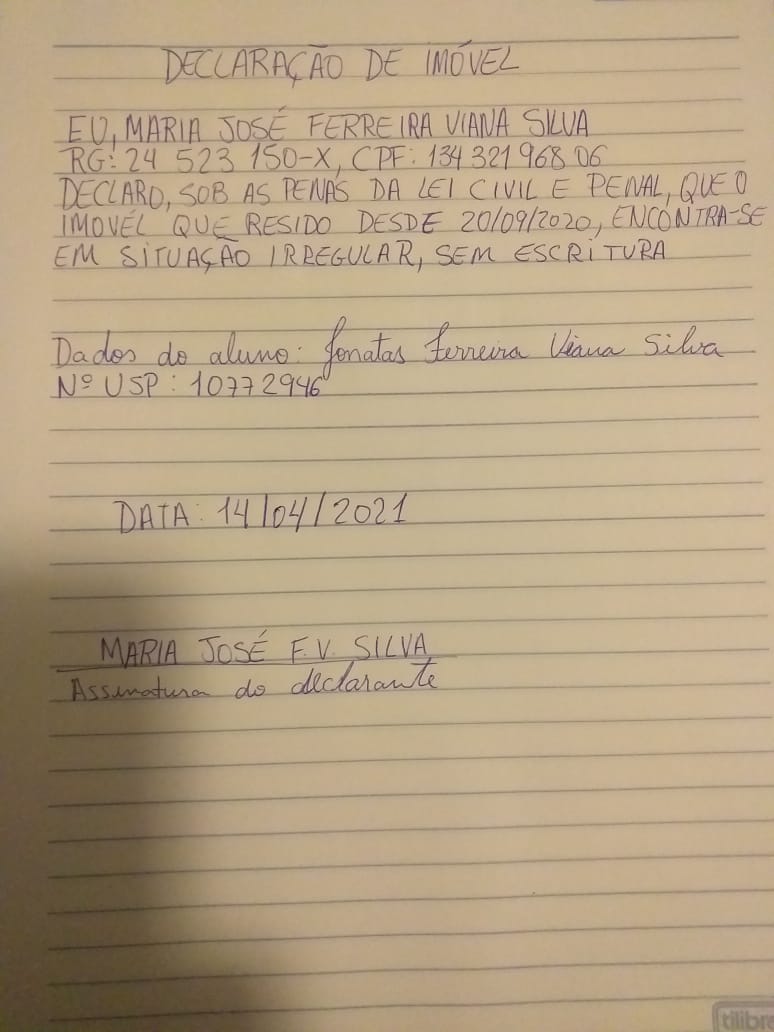 DECLARAÇÃO DE IMÓVEL
EU, MARIA JOSÉ FERREIRA VIANA SILVA
RG: 24 523 150-X, CPF: 134 321 968 06
DECLARO, SOB AS PENAS DA LEI CIVIL E PENAL, QUE O
IMOVÉL QUE RESIDO DESDE 20/09/2020, ENCONTRA-SE
EM SITUAÇÃO IRREGULAR, SEM ESCRITURA
Dados do aluno: Jonatas Ferreira Viana Silva
Nº USP: 10772946
DATA: 14/04/2021
MARIA JOSÉ F.V. SILVA
Assinatura do declarante
tilibra